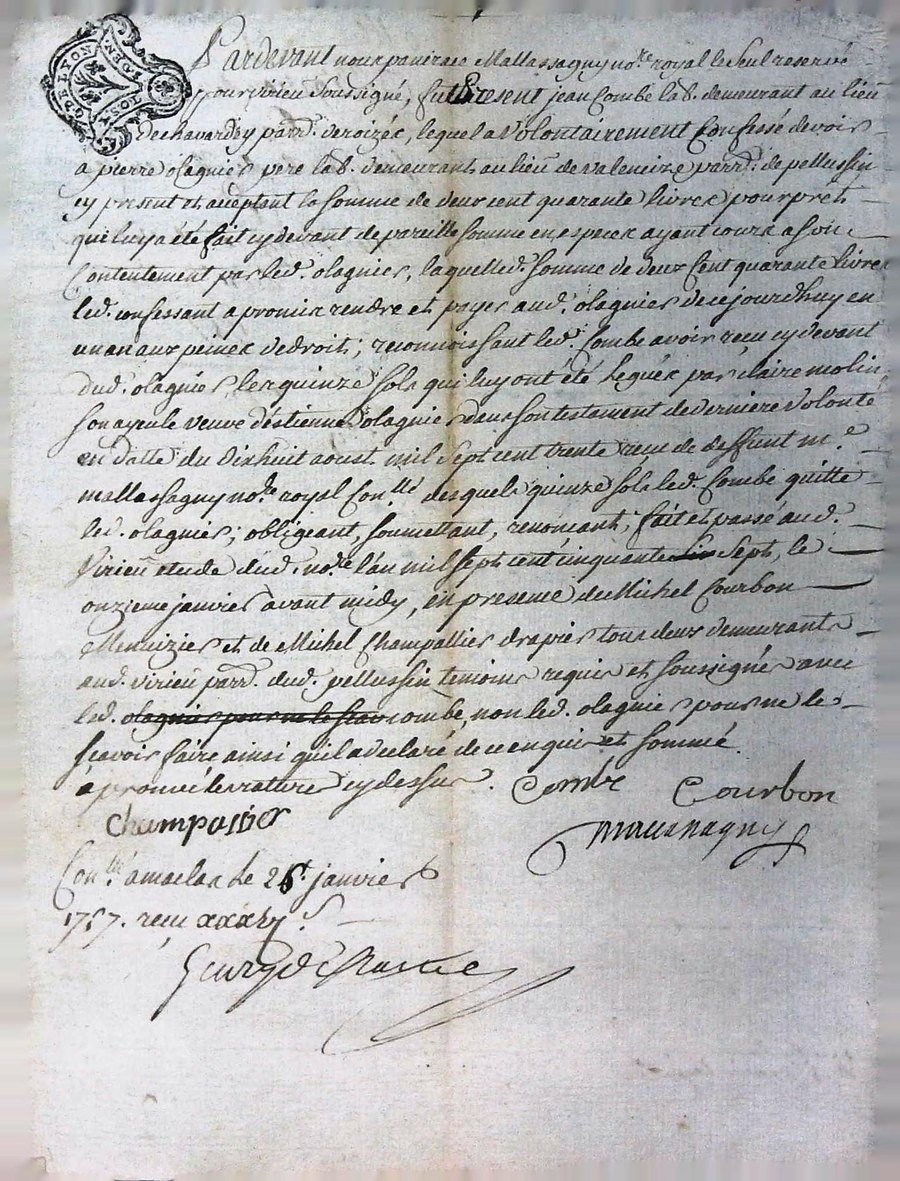 G. DE LYON
Pardevant nous panirace Mallassagny no.re royal le seul reservé
pour virieu soussigné, fut Present jean Combe lab. demeurant au lieu
de chavardey parr. de roizée, lequel a volontairement Confessé devoir
a pierre olagnier pere lab. demeurant au lieu de valencize parr. de pellussin
cy present et acceptant la somme de deux cent quarante livres pour prêt
qui luy a été fait cy devant de pareille somme en especes ayant cours a son
Contentement par led. olagnier, laquelled. somme de deux cent quarante livres
led. confessant a promis rendre et payer aud. olagnier de ce jourdhuy en
un an aux peines de droit; reconnoissant led. Combe avoir reçu cy devant
dud. olagnier les quinze sols qui luy ont été legués par claire molin
son ayeule veuve d'estienne olagnier dans son testament de derniere volonté
en datte du dixhuit aoust mil sept cent trente recu de deffunt m.e
mallassagny no.re royal Con.llé desquels quinze sols led. Combe quitte
led. olagnier; obligeant, soumettant, renoncant; fait et passé aud.
virieu etude dud. no.re l'an mil sept cent cinquante six sept, le
onzieme janvier avant midy, en presence de Michel Courbon
Menuizier et de Michel Champallier drapier tous deux demeurants
aud. virieu parr. dud. pellussin temoins requis et soussignés avec
led. olagnier pour ne le scav combe, non led. olagnier pour ne le
scavoir faire ainsi qu'il a declaré de ce enquis et sommé.
approuvé le rature cy dessus. Combe Courbon
Champallier Mallassagny
Con.llé a maclas le 26 janvier
1757. recu xxxvj s.